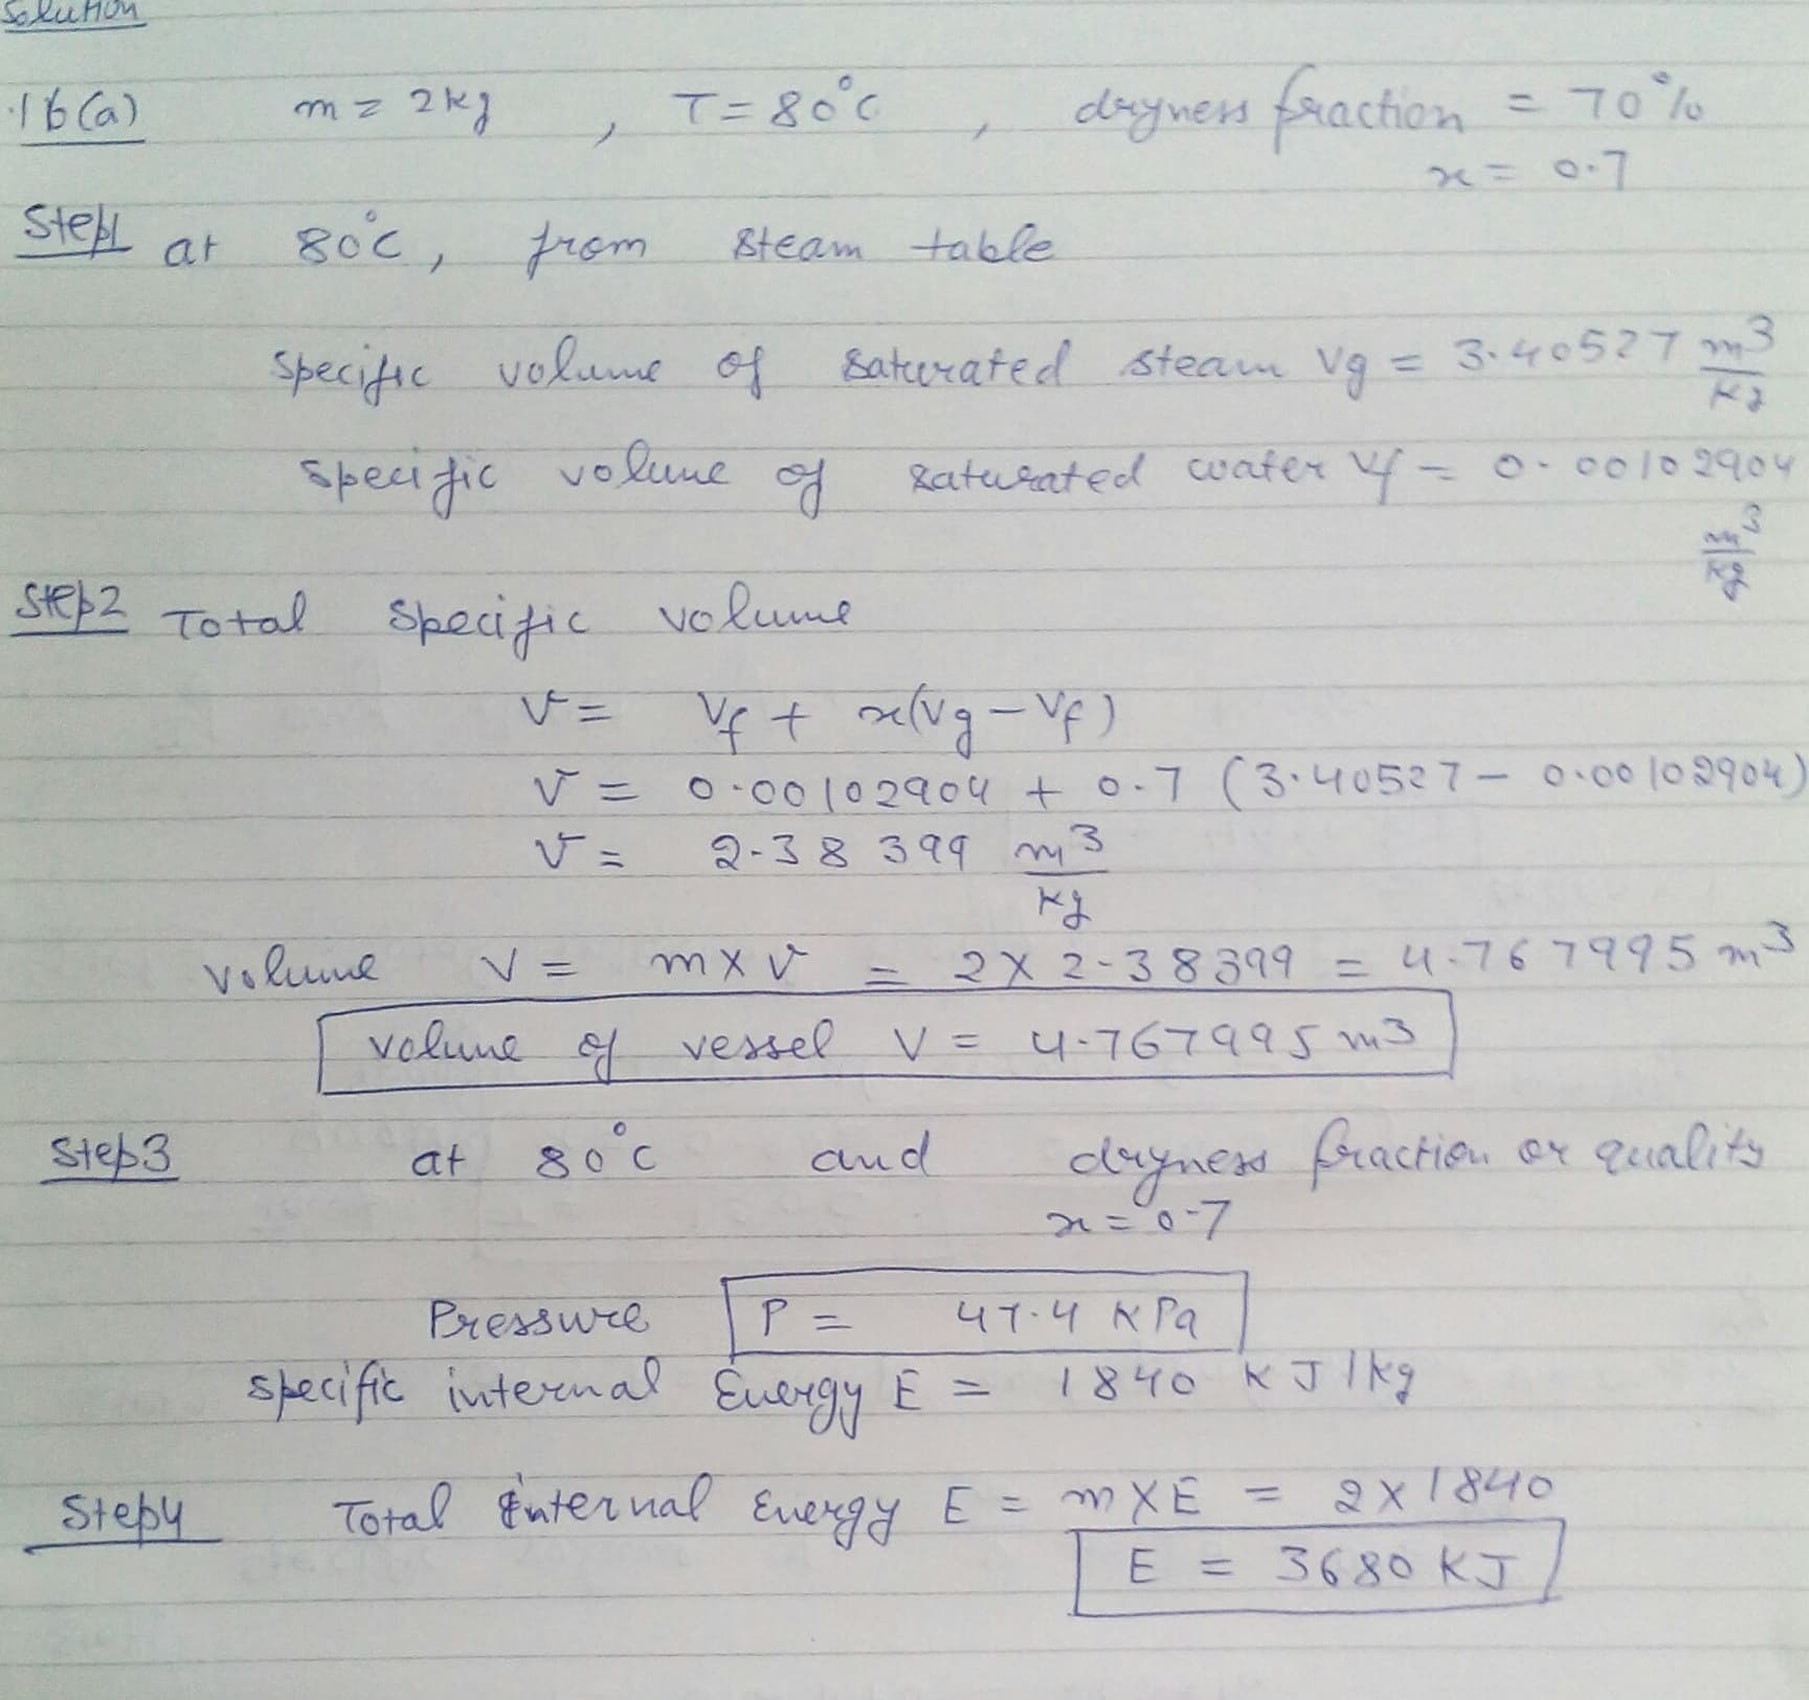 Solution
16(a) m = 2kg , T = 80°C , dryness fraction = 70%
x = 0.7
Step1 at 80°C, from steam table
specific volume of saturated steam Vg = 3.40527 m³/kg
specific volume of saturated water Vf = 0.00102904
m³/kg
Step2 Total specific volume
v = Vf + x(Vg - Vf)
v = 0.00102904 + 0.7 (3.40527 - 0.00102904)
v = 2.38399 m³/kg
volume V = m x v = 2 x 2.38399 = 4.767995 m³
volume of vessel V = 4.767995 m3
Step3 at 80°C and dryness fraction or quality
x = 0.7
Pressure P = 47.4 KPa
specific internal Energy E = 1840 KJ/kg
Step4 Total internal Energy E = m x E = 2 x 1840
E = 3680 KJ